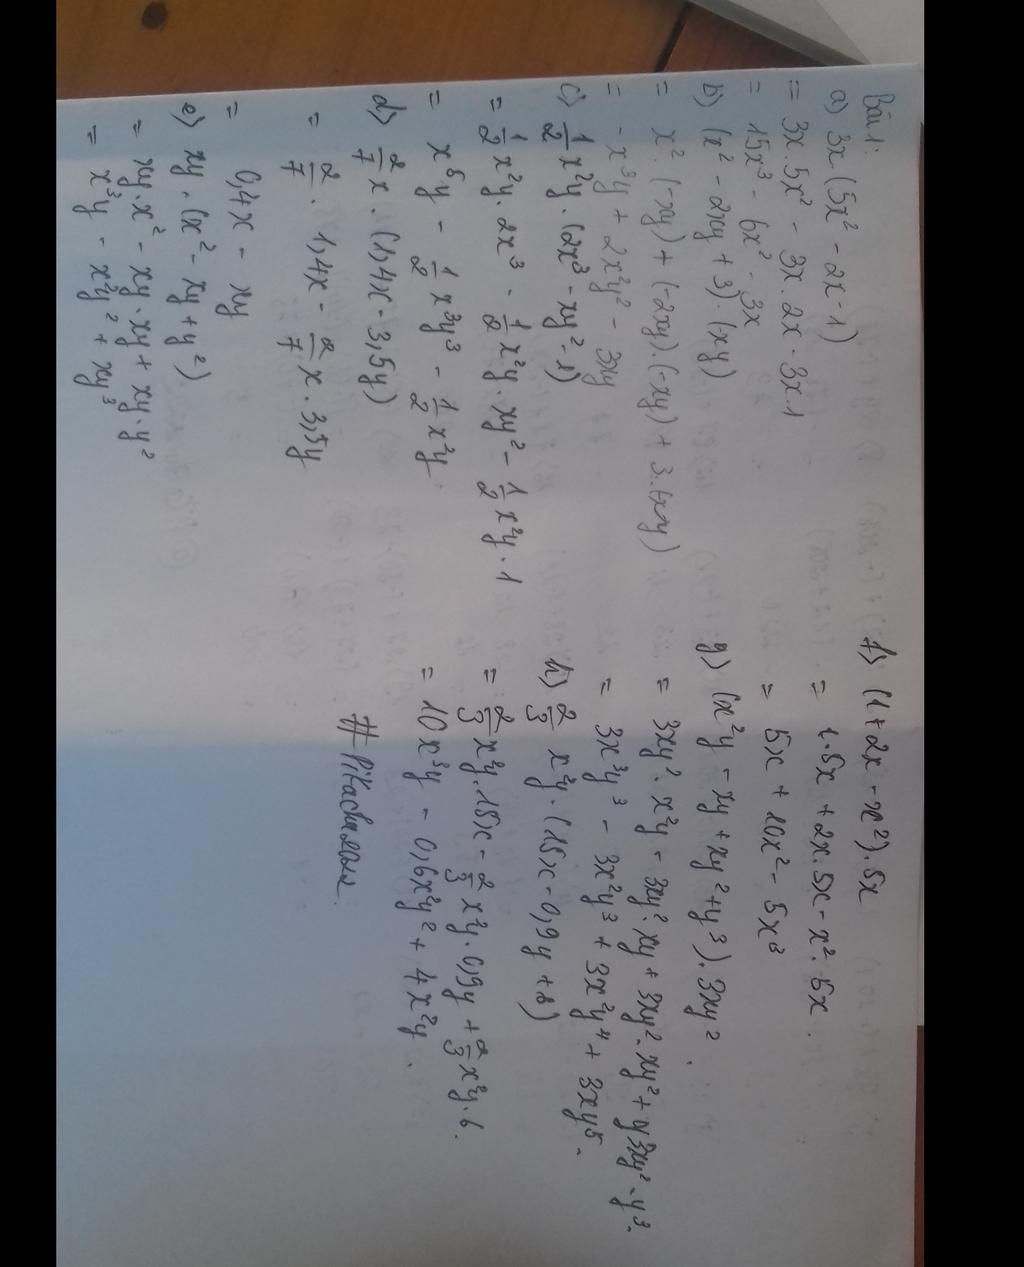 Bài 1:
a) 3x(5x² - 2x - 1)
= 3x.5x² - 3x.2x - 3x.1
= 15x³ - 6x² - 3x
b) (x² - 2xy + 3).(-xy)
= x².(-xy) + (-2xy).(-xy) + 3.(-xy)
= -x³y + 2x²y² - 3xy
c) 1/2 x²y.(2x³ - xy² - 1)
= 1/2 x²y.2x³ - 1/2 x²y.xy² - 1/2 x²y.1
= x⁵y - 1/2 x³y³ - 1/2 x²y
d) 2/7 x.(1,4x - 3,5y)
= 2/7 . 1,4x - 2/7 x.3,5y
= 0,4x - xy
e) xy.(x² - xy + y²)
= xy.x² - xy.xy + xy.y²
= x³y - x²y² + xy³
f) (1 + 2x - x²).5x
= 1.5x + 2x.5x - x².5x.
= 5x + 10x² - 5x³
g) (x²y - xy + xy² + y³).3xy².
= 3xy².x²y - 3xy².xy + 3xy².xy² + y3xy².y³.
= 3x³y³ - 3x²y³ + 3x²y⁴ + 3xy⁵.
h) 2/3 x²y.(15x - 0,9y + 6)
= 2/3 x²y.15x - 2/3 x²y.0,9y + 2/3 x²y.6.
= 10x³y - 0,6x²y² + 4x²y.